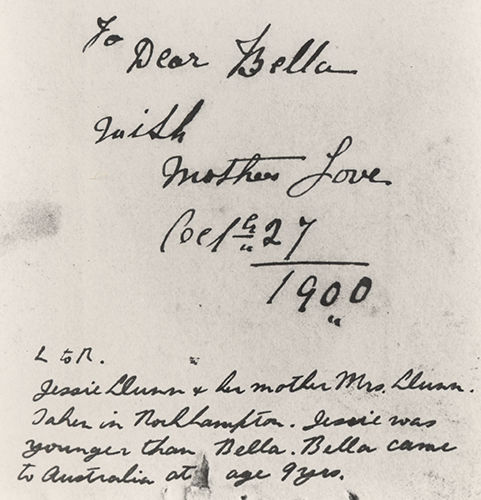 To
Dear Bella
with
Mothers Love
27
1900
L to R.
Jessie Dunn & her mother Mrs. Dunn.
Taken in Rockhampton. Jessie was
younger than Bella. Bella came
to Australia at age 9 yrs.